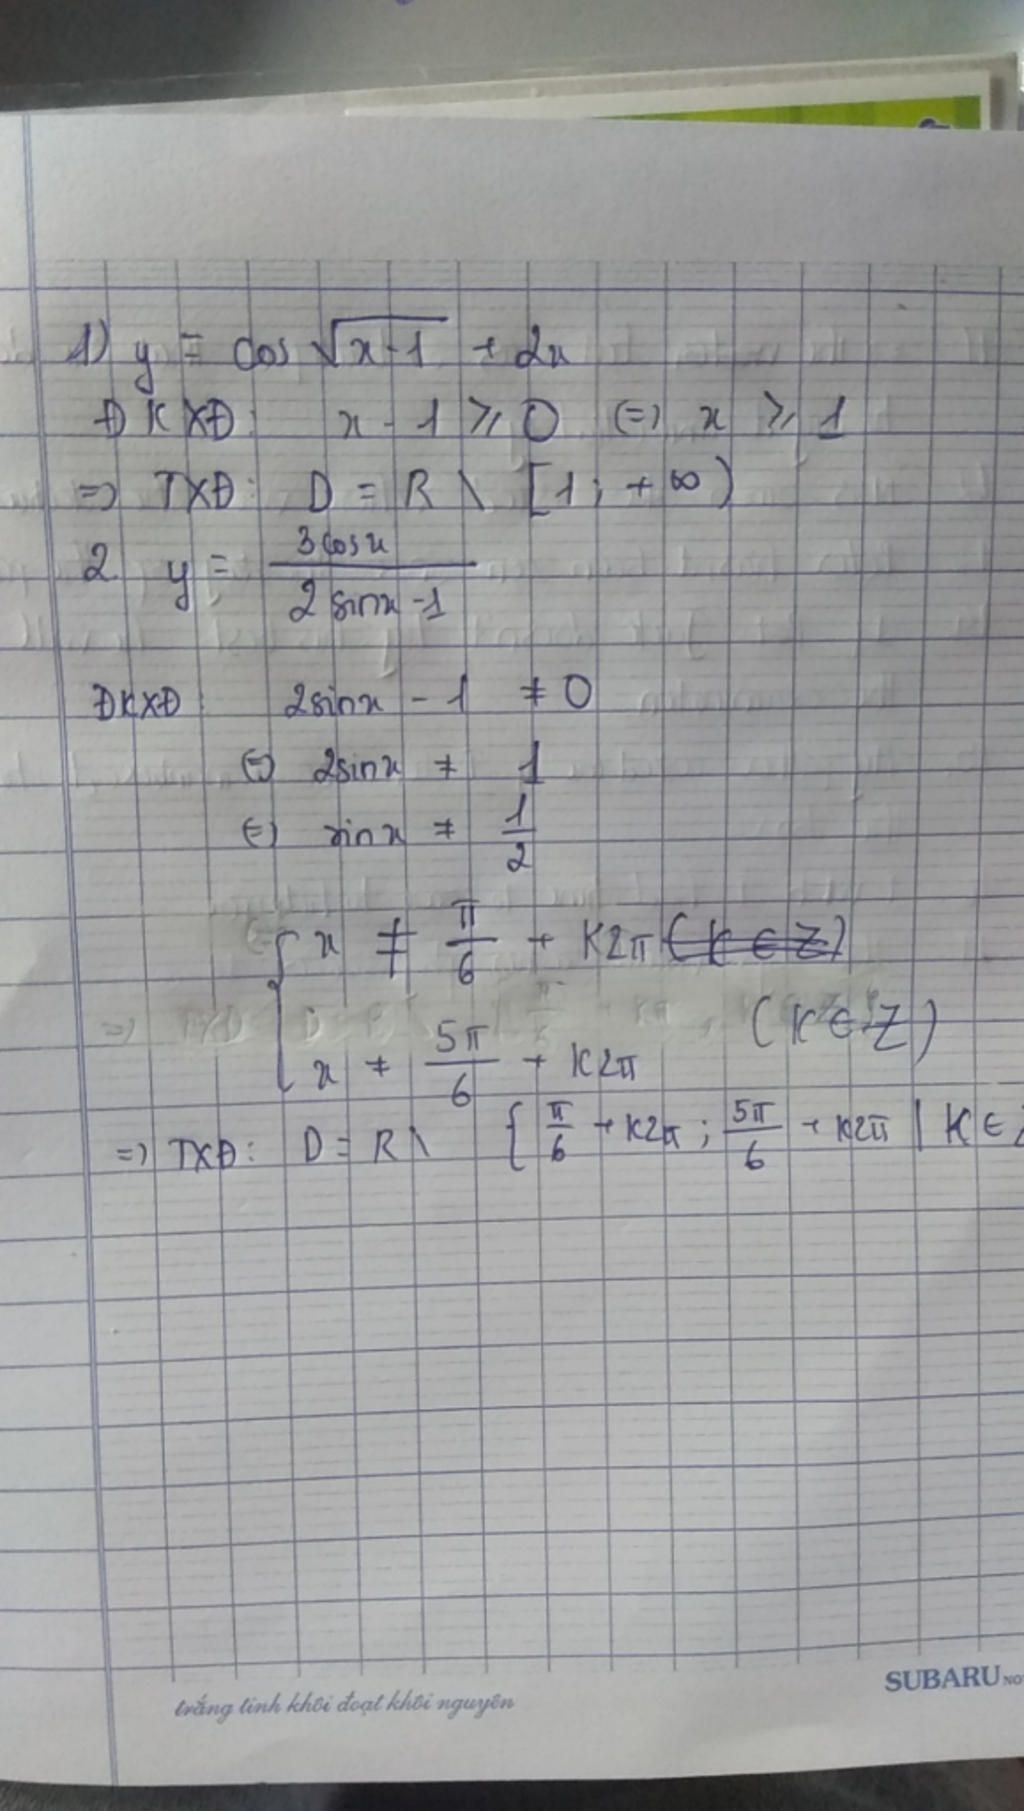 1) y = cos √(x-1) + 2x
ĐKXĐ: x - 1 ⩾ 0 (=) x ⩾ 1
=) TXĐ: D = R \ [1; +∞)
2. y = 3cosx / (2sinx - 1)
ĐKXĐ: 2sinx - 1 ≠ 0
(=) 2sinx ≠ 1
(=) sinx ≠ 1/2
{ x ≠ π/6 + K2π (K ∈ Z)
(K ∈ Z)
x ≠ 5π/6 + K2π
=) TXĐ: D = R \ { π/6 + K2π ; 5π/6 + K2π | K ∈
trắng tinh khôi đoạt khôi nguyên
SUBARU